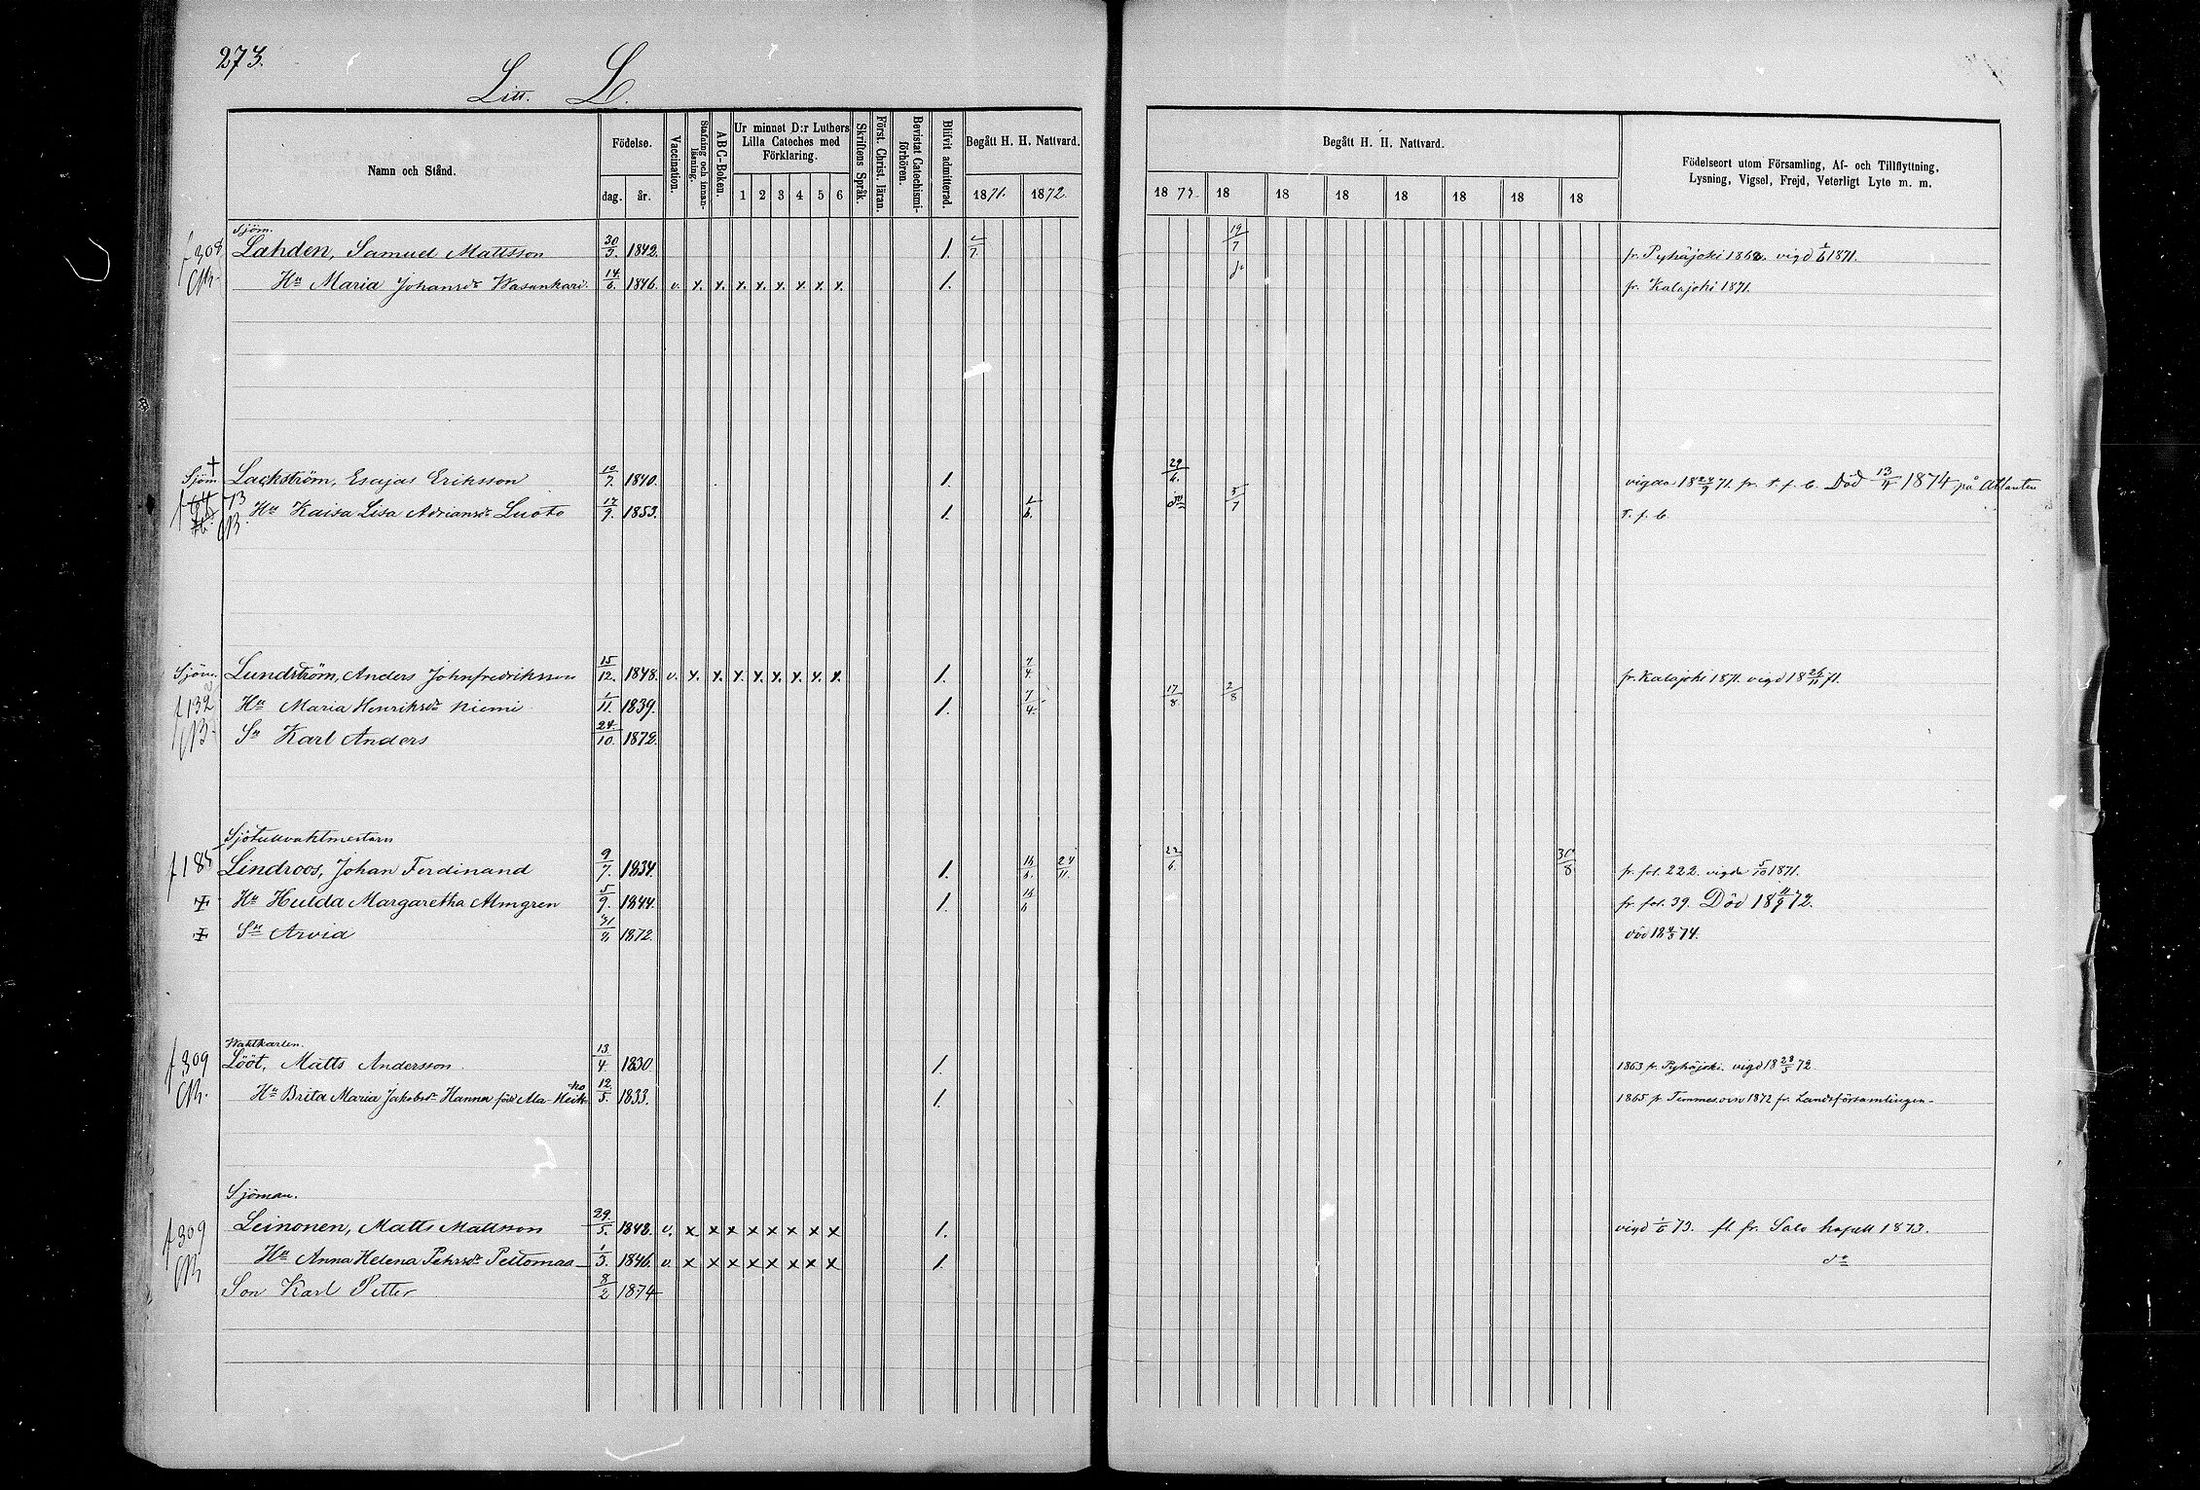 273.
Litt. L.
Namn och Stånd.
Födelse.
dag. år.
Vaccination.
Stafning och innanläsning.
ABC-Boken.
Ur minnet D:r Luthers Lilla Cateches med Förklaring.
1 2 3 4 5 6
Skriftens Språk.
Först. Christ. läran.
Bevistat Catechismiförhören.
Blifvit admitterad.
Begått H. H. Nattvard.
1871. 1872.
Begått H. H. Nattvard.
1873. 18 18 18 18 18 18 18
Födelseort utom Församling, Af- och Tillflyttning,
Lysning, Vigsel, Frejd, Veterligt Lyte m. m.
Sjöm.
f 308 Lahden, Samuel Mattsson 30/3. 1842. 1. 19/7 fr. Pyhäjoki vigd 1871.
Hu Maria Johansdr Wasankari. 14/6. 1846. v. x. x. x. x. x. x. x. x. 1. fr. Kalajoki 1871.
Sjöm + Lackström, Esajas Eriksson 10/7. 1840. 1. 29/6. vigda 18 24/9 71. fr. t. f. b. Död 13/11 1874 på Atlanten
73 Hu Kaisa Lisa Adriansdr Luoto 17/9. 1853. 1. do 5/7 T. f. b.
Sjöm. Lundström, Anders Johnfredriksson 15/12. 1848. v. x. x. x. x. x. x. x. x. 1. 7/4 fr. Kalajoki 1871. vigd 18 26/11 71.
f 132 Hu Maria Henriksdr Niemi 1/11. 1839. 1. 7/4. 17/8 2/8
Sn Karl Anders 24/10. 1872.
Sjötullvaktmestaren
f 185 Lindroos, Johan Ferdinand 9/7. 1834. 1. 16/6. 24/11. 22/6. 31/8 fr. fol. 222. vigda 5/10 1871.
+ Hu Hulda Margaretha Almgren 5/9. 1844. 1. 16/6 fr. fol. 39. Död 18 11/9 72.
+ Sn Arvid 31/8 1872. död 74.
Waktkarlen.
f 309 Lööt, Matts Andersson. 13/4 1830 1. 1863 fr. Pyhäjoki. vigd 18 28/3 72
Hu Brita Maria Jakobsdr Hanna född Ala-Heikko 12/5. 1833. 1. 1865 fr. Temmes och 1872 fr. Landsförsamlingen.
Sjöman.
f 309 Leinonen, Matts Mattsson 29/5. 1848. v. x x x x x x x x 1. vigd 1/6 73. fl. fr. Salo kapell 1873.
Hu Anna Helena Pehrsdr Peltomaa 1/3. 1846. v. x x x x x x x x 1. do
Son Karl Petter 8/2 1874